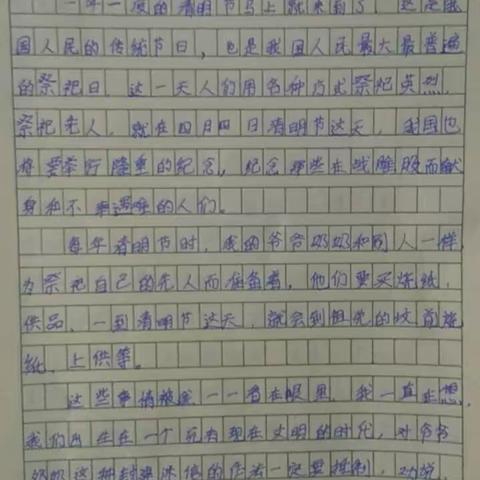 一年一度的清明节马上就来到了，这是我
国人民的传统节日，也是我国人民最大最普遍
的祭祀日。这一天人们用各种方式祭祀英烈，
祭祀先人。就在四月四日清明节这天，我国也
将要举行隆重的纪念，纪念那些在战 而献
身和不幸遇难的人们。
每年清明节时，我的爷爷奶奶和别人一样，
为祭祀自己的先人而准备着，他们要买烧纸，
供品，一到清明节这天，就会到祖先的坟前烧
纸，上供等。
这些事情被我一一看在眼里，我一直在想，
我们出生在一个 有现在文明的时代，对爷爷
奶奶这种封建迷信的作法一定要抵制，劝说，